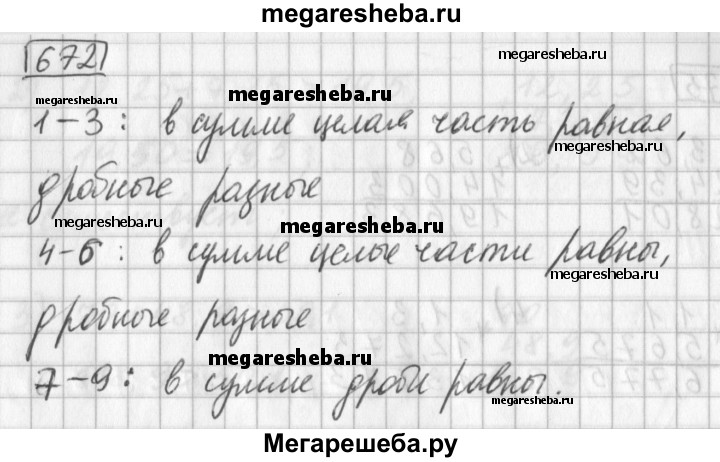 megaresheba.ru
672
megaresheba.ru
megaresheba.ru
megaresheba.ru
1-3: в сумме целая часть равная,
megaresheba.ru
дробные разные
megaresheba.ru
megaresheba.ru
4-6: в сумме целые части равны,
megaresheba.ru
дробные разные
megaresheba.ru
7-9: в сумме дроби равны.
megaresheba.ru
Мегарешеба.ру